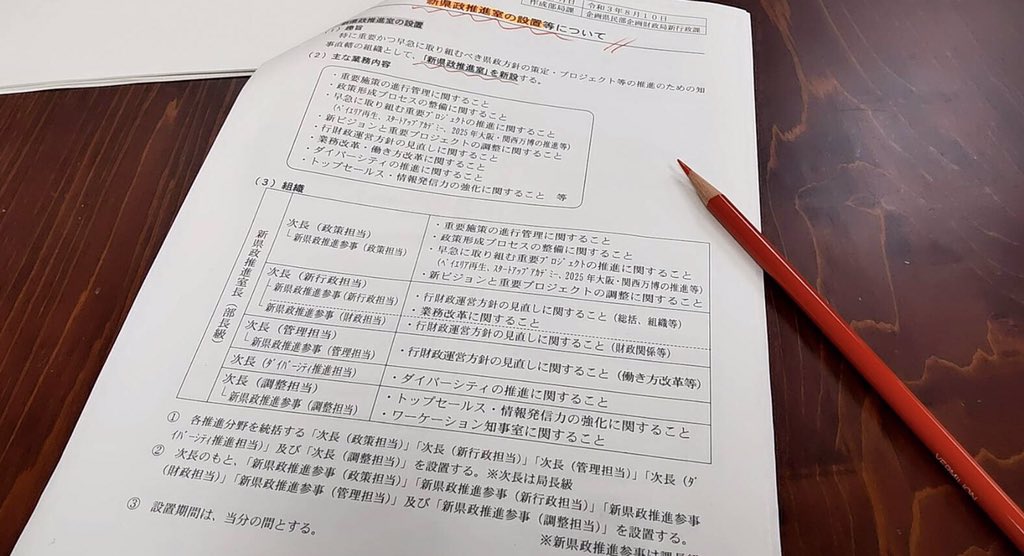 作成部局課
令和3年8月10日
企画県民部企画財政局新行政課
新県政推進室の設置等について
新県政推進室の設置
特に重要かつ早急に取り組むべき県政方針の策定・プロジェクト等の推進のための知
事直轄の組織として、「新県政推進室」を新設する。
(2) 主な業務内容
・重要施策の進行管理に関すること
・政策形成プロセスの整備に関すること
・早急に取り組む重要プロジェクトの推進に関すること
(ベイエリア再生、スタートアップアカデミー、2025年大阪・関西万博の推進等)
・新ビジョンと重要プロジェクトの調整に関すること
・行財政運営方針の見直しに関すること
・業務改革・働き方改革に関すること
・ダイバーシティの推進に関すること
・トップセールス・情報発信力の強化に関すること 等
(3) 組織
新県政推進室長(部長級)
次長(政策担当)
└新県政推進参事(政策担当)
・重要施策の進行管理に関すること
・政策形成プロセスの整備に関すること
・早急に取り組む重要プロジェクトの推進に関すること
(ベイエリア再生、スタートアップアカデミー、2025年大阪・関西万博の推進等)
・新ビジョンと重要プロジェクトの調整に関すること
次長(新行政担当)
├新県政推進参事(新行政担当)
・行財政運営方針の見直しに関すること(総括、組織等)
・業務改革に関すること
└新県政推進参事(財政担当)
・行財政運営方針の見直しに関すること(財政関係等)
次長(管理担当)
└新県政推進参事(管理担当)
・行財政運営方針の見直しに関すること(働き方改革等)
次長(ダイバーシティ推進担当)
・ダイバーシティの推進に関すること
次長(調整担当)
└新県政推進参事(調整担当)
・トップセールス・情報発信力の強化に関すること
・ワーケーション知事室に関すること
① 各推進分野を統括する「次長(政策担当)」「次長(新行政担当)」「次長(管理担当)」「次長(ダ
イバーシティ推進担当)」及び「次長(調整担当)」を設置する。※次長は局長級
② 次長のもと、「新県政推進参事(政策担当)」「新県政推進参事(新行政担当)」「新県政推進参事
(財政担当)」「新県政推進参事(管理担当)」及び「新県政推進参事(調整担当)」を設置する。
※新県政推進参事は課長級
③ 設置期間は、当分の間とする。
VERMILION